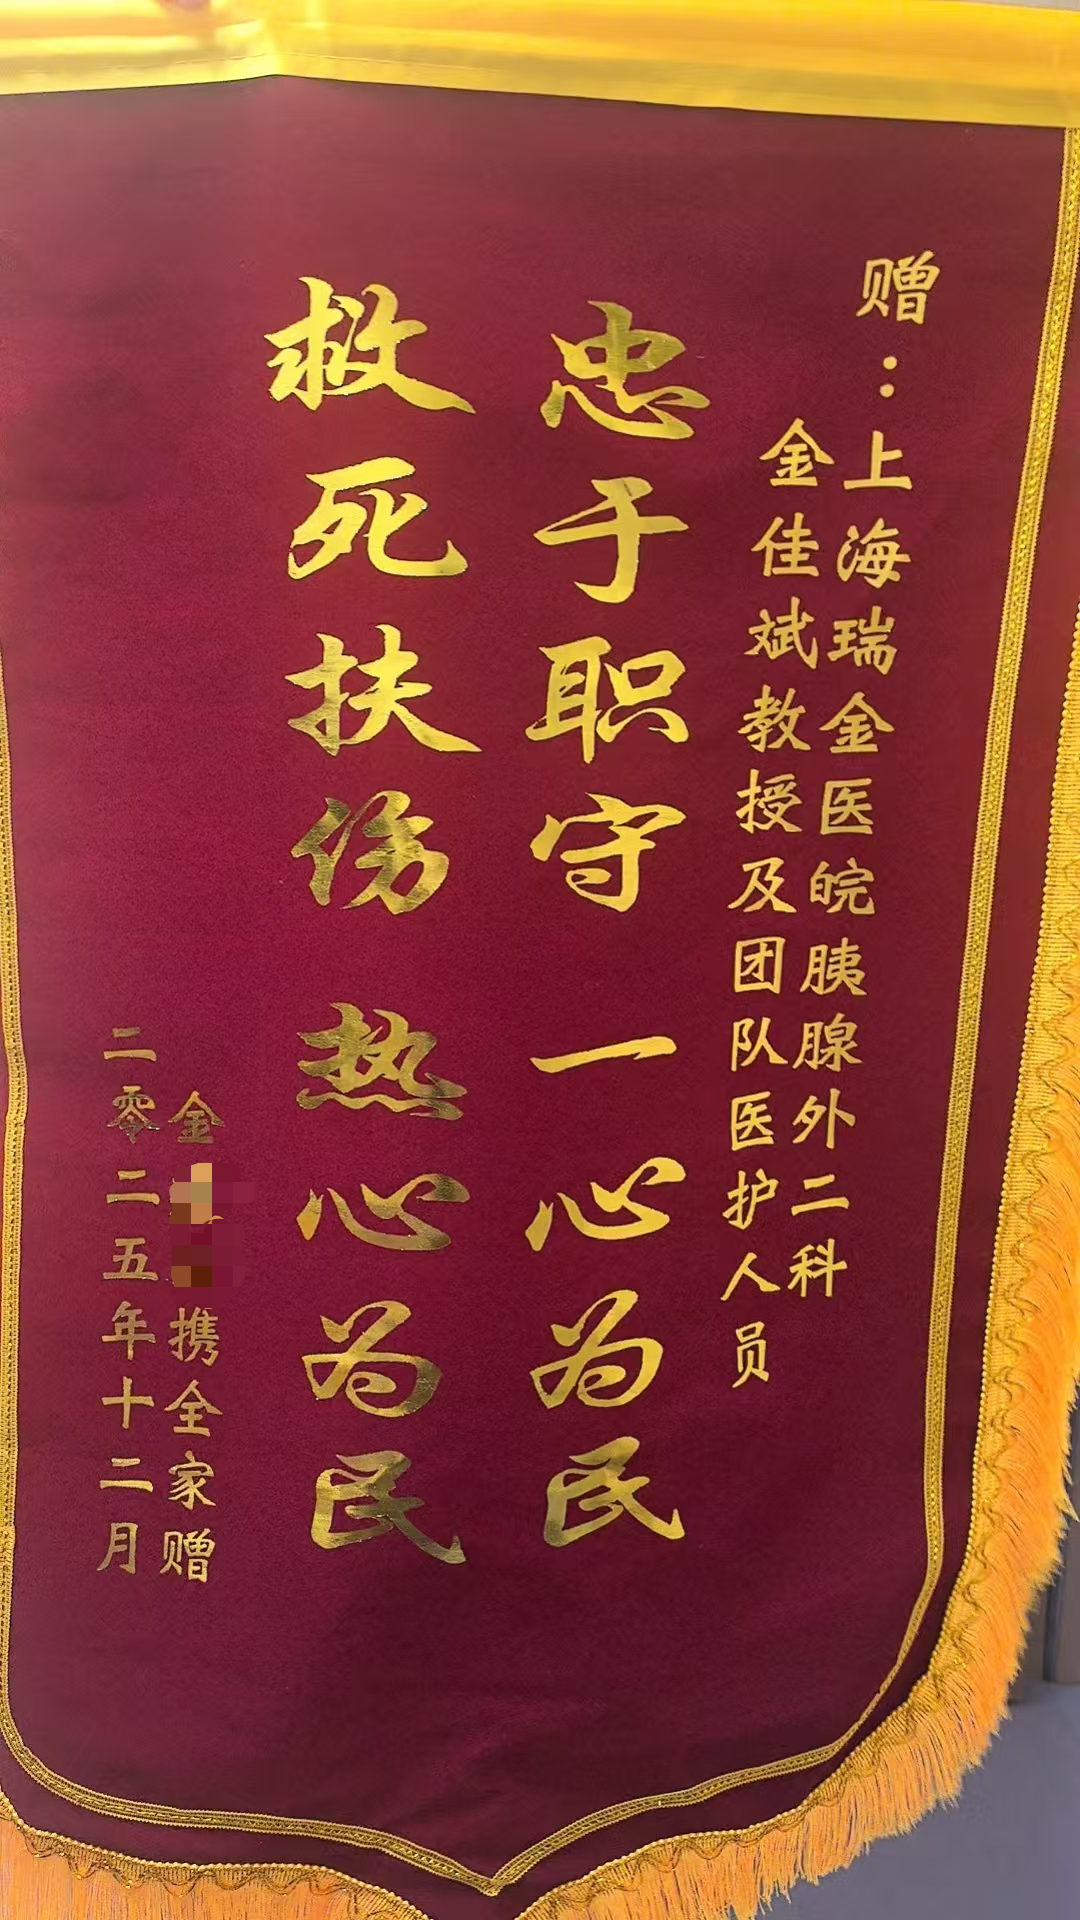 赠：上海瑞金医皖胰腺外二科
金佳斌教授及团队医护人员
忠于职守 一心为民
救死扶伤 热心为民
金
携全家赠
二零二五年十二月